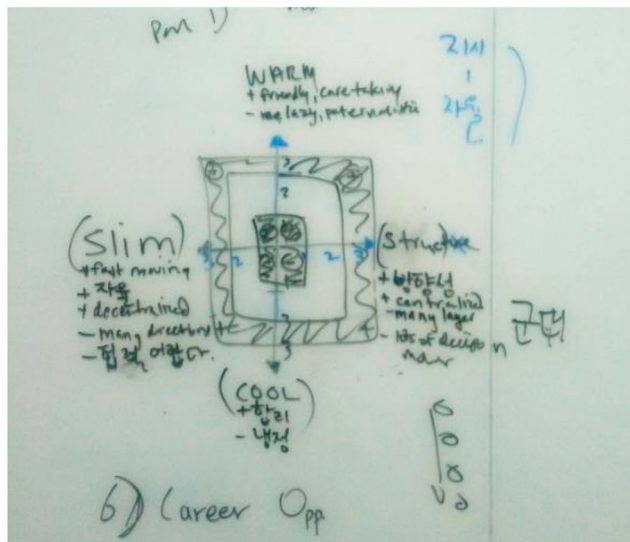 WARM
+ friendly, care taking
- lazy, paternalistic
(Slim)
+ fast moving
+ 자율
+ decentrained
- many directions
- 협력 어렵다.
(Structure
+ 방향성
+ centralized
- many layer
- lots of decision
maker
군대
3 2
2 3
2
3
(COOL)
+ 합리
- 냉정
6) Career Opp.